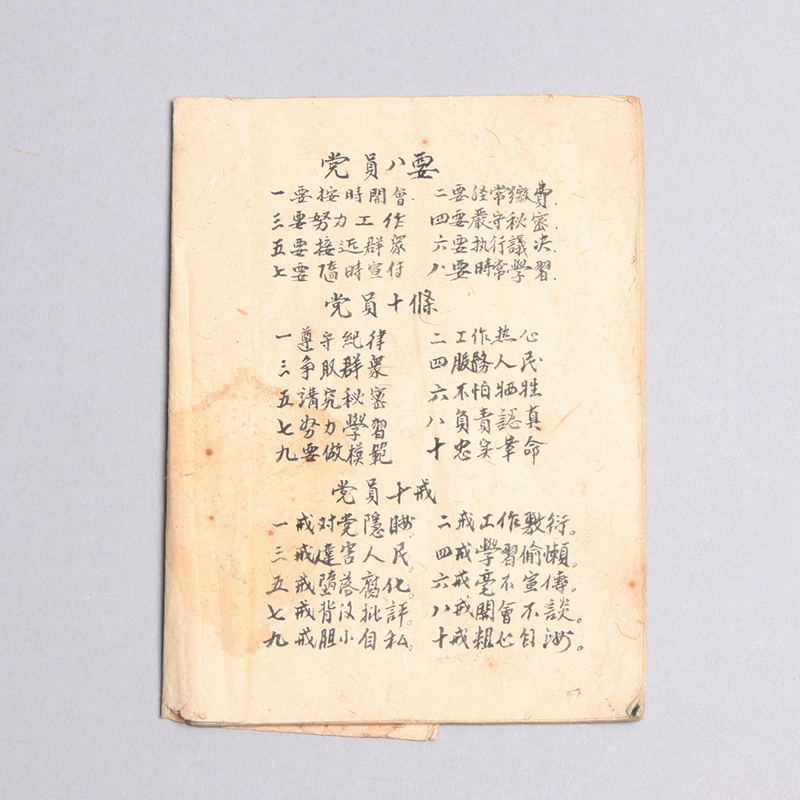 党員八要
一要按時開會. 二要经常缴費.
三要努力工作 四要嚴守秘密.
五要接近群眾 六要执行議决.
七要隨時宣传 八要時常學習.
党員十條
一遵守紀律 二工作热心
三争取群衆 四服務人民
五講究秘密 六不怕牺牲
七努力學習 八負責認真
九要做模範 十忠实革命
党員十戒
一戒对党隱瞒。 二戒工作敷衍。
三戒違害人民。 四戒學習偷懶。
五戒墮落腐化。 六戒毫不宣傳。
七戒背後批評。 八戒開會不談。
九戒胆小自私。 十戒粗心自满。